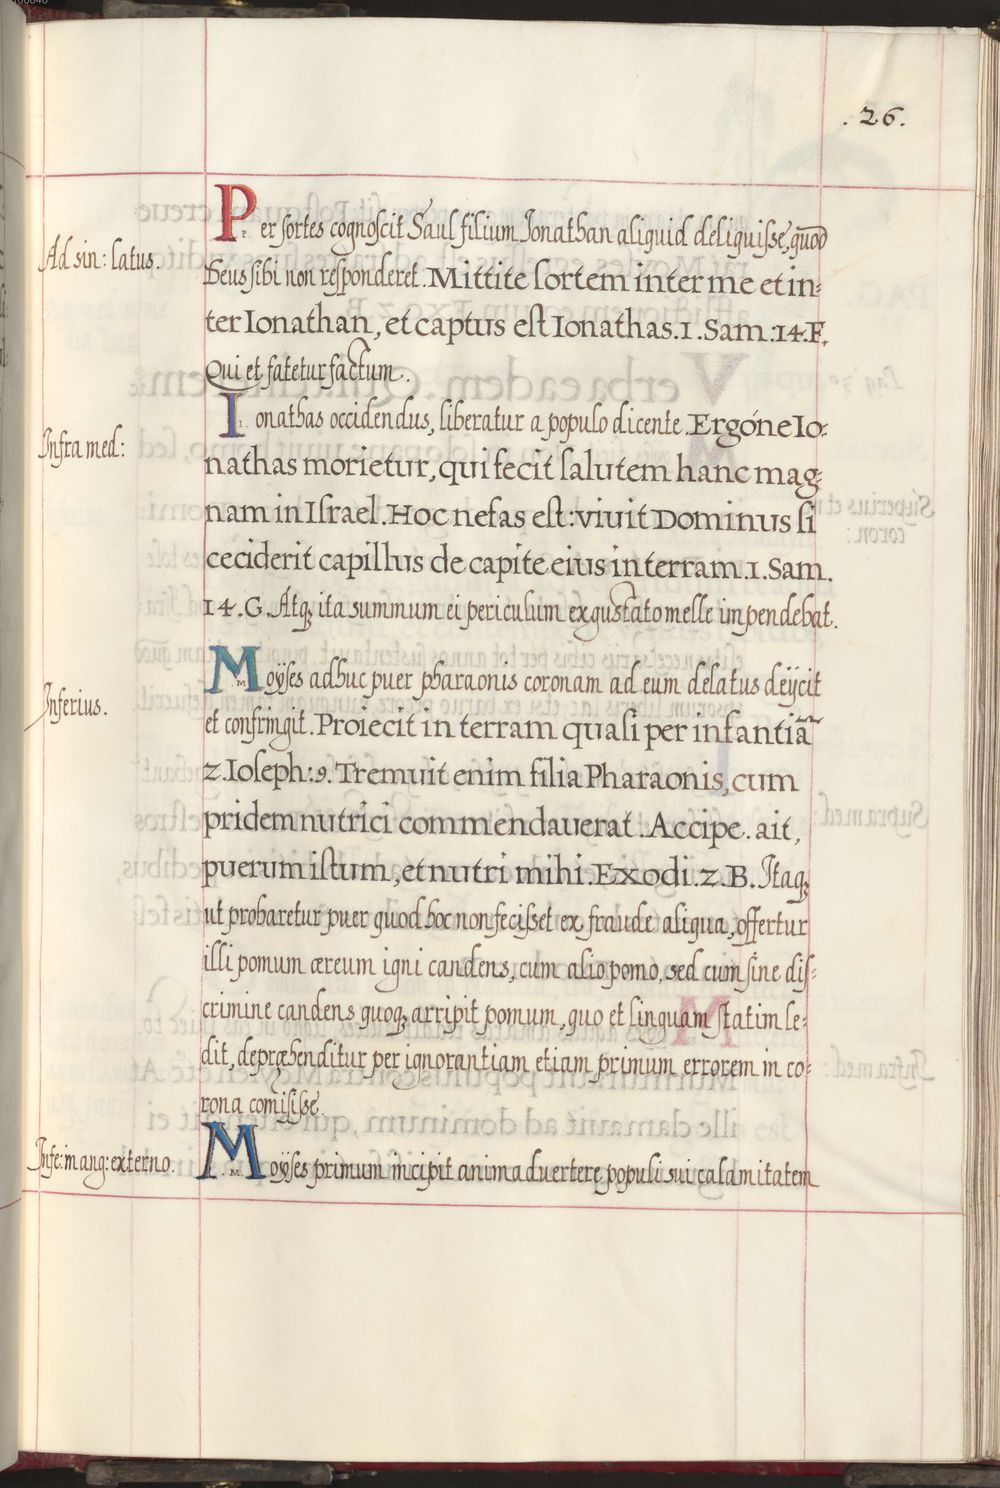 .26.
Ad sin: latus.
Per sortes cognoscit Saul filium Jonathan aliquid deliquisse, quod
Deus sibi non responderet. Mittite sortem inter me et in-
ter Ionathan, et captus est Ionathas. 1. Sam: 14. F.
Qui et fatetur factum.
Infra med:
Ionathas occidendus, liberatur a populo dicente. Ergóne Io-
nathas morietur, qui fecit salutem hanc mag-
nam in Israel. Hoc nefas est: viuit Dominus si
ceciderit capillus de capite eius in terram. 1. Sam.
14. G. Atq; ita summum ei periculum ex gustato melle impendebat.
Inferius.
Moÿses adhuc puer pharaonis coronam ad eum delatus deijcit
et confringit. Proiecit in terram quasi per infantiã
2. Ioseph: 9. Tremuit enim filia Pharaonis, cum
pridem nutrici commendauerat. Accipe. ait,
puerum istum, et nutri mihi. Exodi. 2. B. Itaq;
ut probaretur puer quod hoc non fecisset ex fraude aliqua, offertur
illi pomum æreum igni candens, cum alio pomo, sed cum sine dis-
crimine candens quoq; arripit pomum, quo et linguam statim le-
dit, depræhenditur per ignorantiam etiam primum errorem in co-
rona comisisse.
Infe: in ang: externo.
Moÿses primum incipit animaduertere populi sui calamitatem